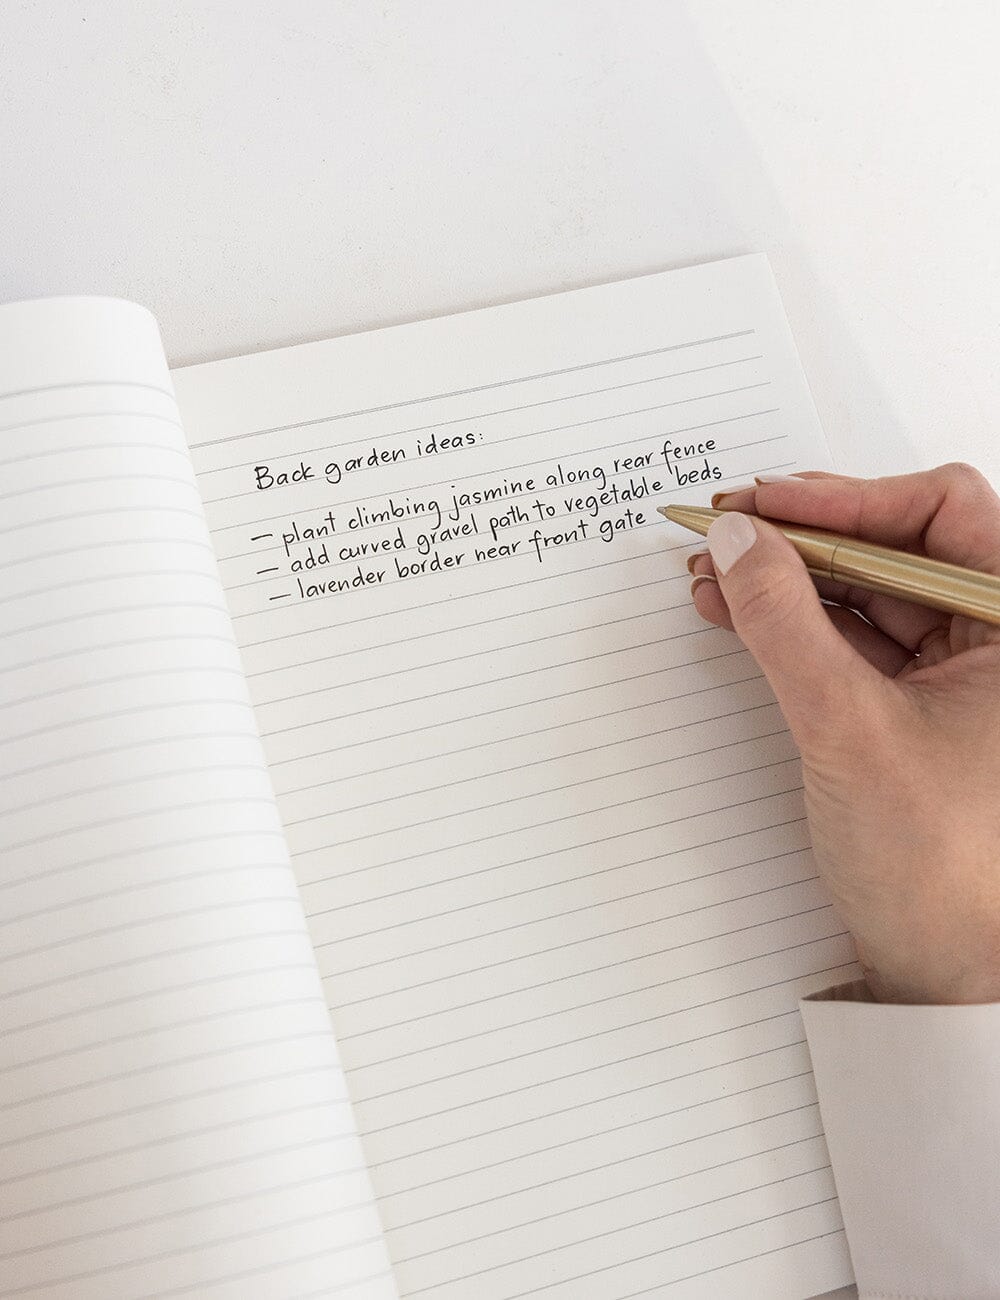 Back garden ideas:
– plant climbing jasmine along rear fence
– add curved gravel path to vegetable beds
– lavender border near front gate